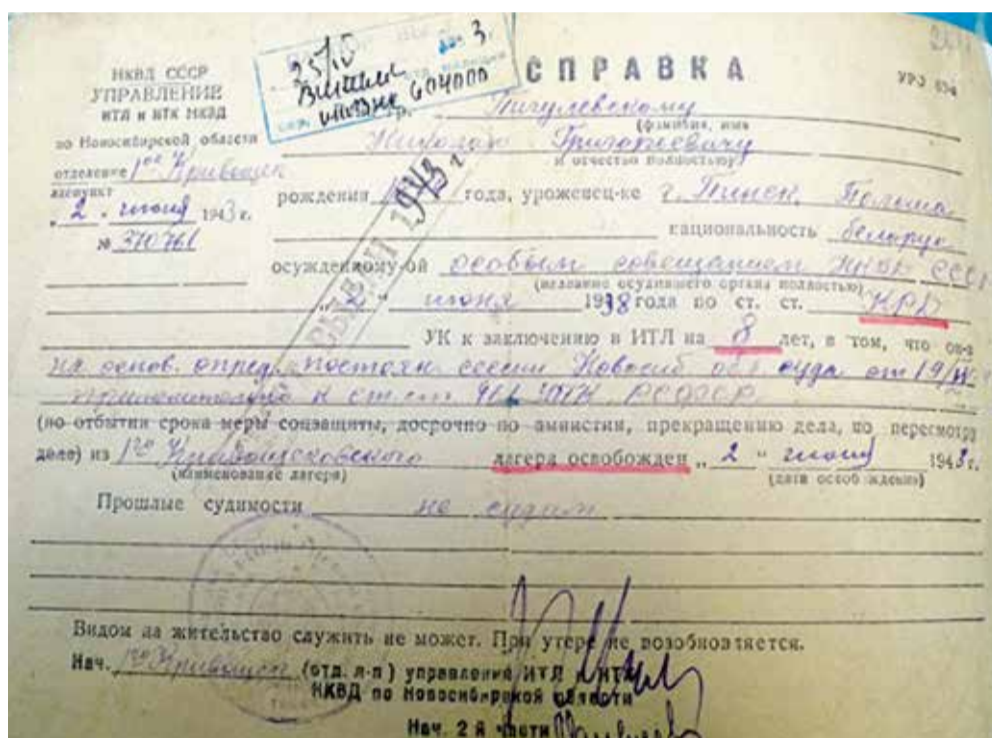 СПРАВКА
УРЗ 65а
НКВД СССР
УПРАВЛЕНИЕ
ИТЛ и ИТК НКВД
по Новосибирской области
отделение 1ое Кривощек
лагпункт
"2" июня 1943 г.
№ 370761
Пигулевскому
(фамилия, имя
Николаю Григорьевичу
и отчество полностью)
рождения года, уроженец-ке г. Пинск, Польша
национальность белорус
осужденному-ой особым совещанием НКВД СССР
(название осудившего органа полностью)
"2" июня 1938 года по ст. ст. КРД
УК к заключению в ИТЛ на 8 лет, в том, что он-а
на основ. опред. постоян. сессии Новосиб. обл. суда от 19/
применительно к ст. ст. УПК РСФСР
(по отбытии срока меры соцзащиты, досрочно по амнистии, прекращению дела, по пересмотра
деле) из 1го Кривощековского лагеря освобожден "2" июня 1943 г.
(наименование лагеря) (дата освобождения)
Прошлые судимости не судим
Видом на жительство служить не может. При утере не возобновляется.
Нач. 1го Кривощек (отд. л-п) управления ИТЛ и ИТК
НКВД по Новосибирской области
Нач. 2 й части